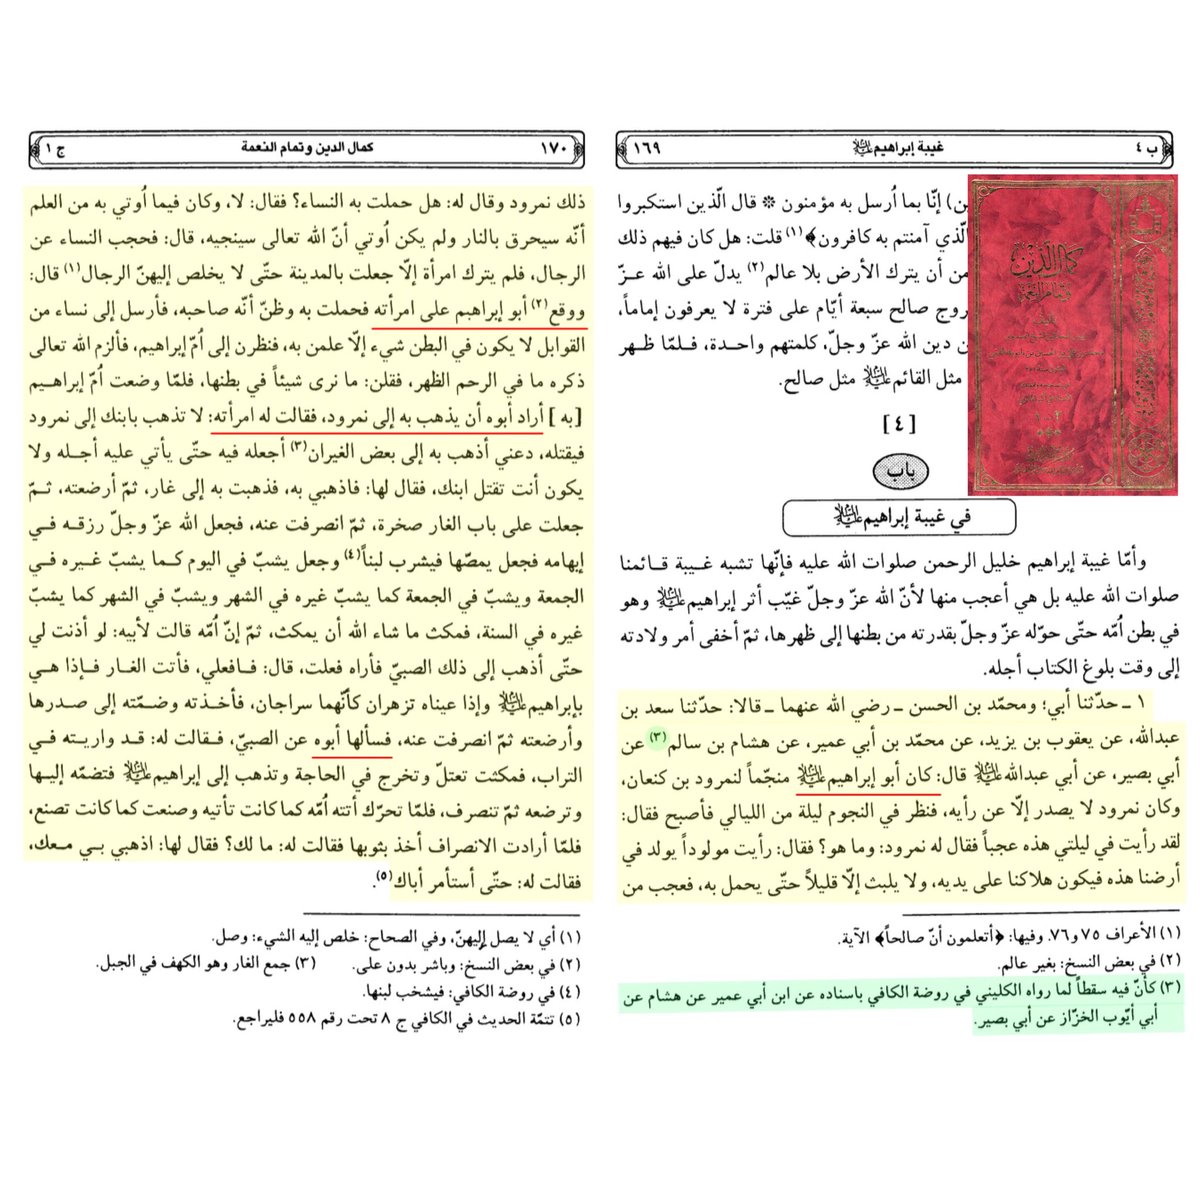 ب ٤ غيبة إبراهيم عليه السلام ١٦٩
ـن) إنّا بما أُرسل به مؤمنون * قال الّذين استكبروا
ـلّذي آمنتم به كافرون﴾(١) قلت: هل كان فيهم ذلك
ـمن أن يترك الأرض بلا عالم(٢) يدلّ على الله عـزّ
ـروج صالح سبعة أيّام على فترة لا يعرفون إماماً،
ـن دين الله عزّ وجلّ، كلمتهم واحدة، فـلمّا ظـهر
مثل القائم عليه السلام مثل صالح.
كمال الدين
وتمام النعمة
[ ٤ ]
باب
في غيبة إبراهيم عليه السلام
وأمّا غيبة إبراهيم خليل الرحمن صلوات الله عليه فإنّها تشبه غـيبة قـائمنا
صلوات الله عليه بل هي أعجب منها لأنّ الله عزّ وجلّ غيّب أثر إبراهيم عليه السلام وهو
في بطن اُمّه حتّى حوّله عزّ وجلّ بقدرته من بطنها إلى ظهرها، ثمّ أخفى أمر ولادته
إلى وقت بلوغ الكتاب أجله.
١ ـ حدّثنا أبي؛ ومحمّد بن الحسن ـ رضي الله عنهما ـ قالا: حدّثنا سعد بن
عبدالله، عن يعقوب بن يزيد، عن محمّد بن أبي عمير، عن هشام بن سالم(٣) عن
أبي بصير، عن أبي عبدالله عليه السلام قال: كان أبو إبراهيم عليه السلام منجّماً لنمرود بن كنعان،
وكان نمرود لا يصدر إلّا عن رأيه، فنظر في النجوم ليلة من الليالي فأصبح فقال:
لقد رأيت في ليلتي هذه عجباً فقال له نمرود: وما هو؟ فقال: رأيت مولوداً يولد في
أرضنا هذه فيكون هلاكنا على يديه، ولا يلبث إلّا قليلاً حتّى يحمل به، فعجب من
(١) الأعراف ٧٥ و٧٦. وفيها: ﴿أتعلمون أنّ صالحاً﴾ الآية.
(٢) في بعض النسخ: بغير عالم.
(٣) كأنّ فيه سقطاً لما رواه الكليني في روضة الكافي باسناده عن ابن أبي عمير عن هشام عن
أبي أيّوب الخزّاز عن أبي بصير.
١٧٠ كمال الدين وتمام النعمة ج ١
ذلك نمرود وقال له: هل حملت به النساء؟ فقال: لا، وكان فيما اُوتي به من العلم
أنّه سيحرق بالنار ولم يكن اُوتي أنّ الله تعالى سينجيه، قال: فحجب النساء عن
الرجال، فلم يترك امرأة إلّا جعلت بالمدينة حتّى لا يخلص إليهنّ الرجال(١) قال:
ووقع(٢) أبو إبراهيم على امرأته فحملت به وظنّ أنّه صاحبه، فأرسل إلى نساء من
القوابل لا يكون في البطن شيء إلّا علمن به، فنظرن إلى اُمّ إبراهيم، فألزم الله تعالى
ذكره ما في الرحم الظهر، فقلن: ما نرى شيئاً في بطنها، فلمّا وضعت اُمّ إبراهـيم
[به] أراد أبوه أن يذهب به إلى نمرود، فقالت له امرأته: لا تذهب بابنك إلى نمرود
فيقتله، دعني أذهب به إلى بعض الغيران(٣) أجعله فيه حتّى يأتي عليه أجـله ولا
يكون أنت تقتل ابنك، فقال لها: فاذهبي به، فذهبت به إلى غار، ثمّ أرضعته، ثـمّ
جعلت على باب الغار صخرة، ثمّ انصرفت عنه، فجعل الله عزّ وجلّ رزقـه فـي
إبهامه فجعل يمصّها فيشرب لبناً(٤) وجعل يشبّ في اليوم كـما يشبّ غـيره فـي
الجمعة ويشبّ في الجمعة كما يشبّ غيره في الشهر ويشبّ في الشهر كما يشبّ
غيره في السنة، فمكث ما شاء الله أن يمكث، ثمّ إنّ اُمّه قالت لأبيه: لو أذنت لي
حتّى أذهب إلى ذلك الصبيّ فأراه فعلت، قال: فـافعلي، فأتت الغـار فـإذا هـي
بإبراهيم عليه السلام وإذا عيناه تزهران كأنّهما سراجان، فأخـذته وضـمّته إلى صـدرها
وأرضعته ثمّ انصرفت عنه، فسألها أبوه عن الصبيّ، فـقالت له: قـد واريـته فـي
التراب، فمكثت تعتلّ وتخرج في الحاجة وتذهب إلى إبراهيم عليه السلام فتضمّه إليـها
وترضعه ثمّ تنصرف، فلمّا تحرّك أتته اُمّه كما كانت تأتيه وصنعت كما كانت تصنع،
فلمّا أرادت الانصراف أخذ بثوبها فقالت له: ما لك؟ فقال لها: اذهبي بـي مـعك،
فقالت له: حتّى أستأمر أباك(٥).
(١) أي لا يصل إليهنّ، وفي الصحاح: خلص إليه الشيء: وصل.
(٢) في بعض النسخ: وباشر بدون على. (٣) جمع الغار وهو الكهف في الجبل.
(٤) في روضة الكافي: فيشخب لبنها.
(٥) تتمّة الحديث في الكافي ج ٨ تحت رقم ٥٥٨ فليراجع.